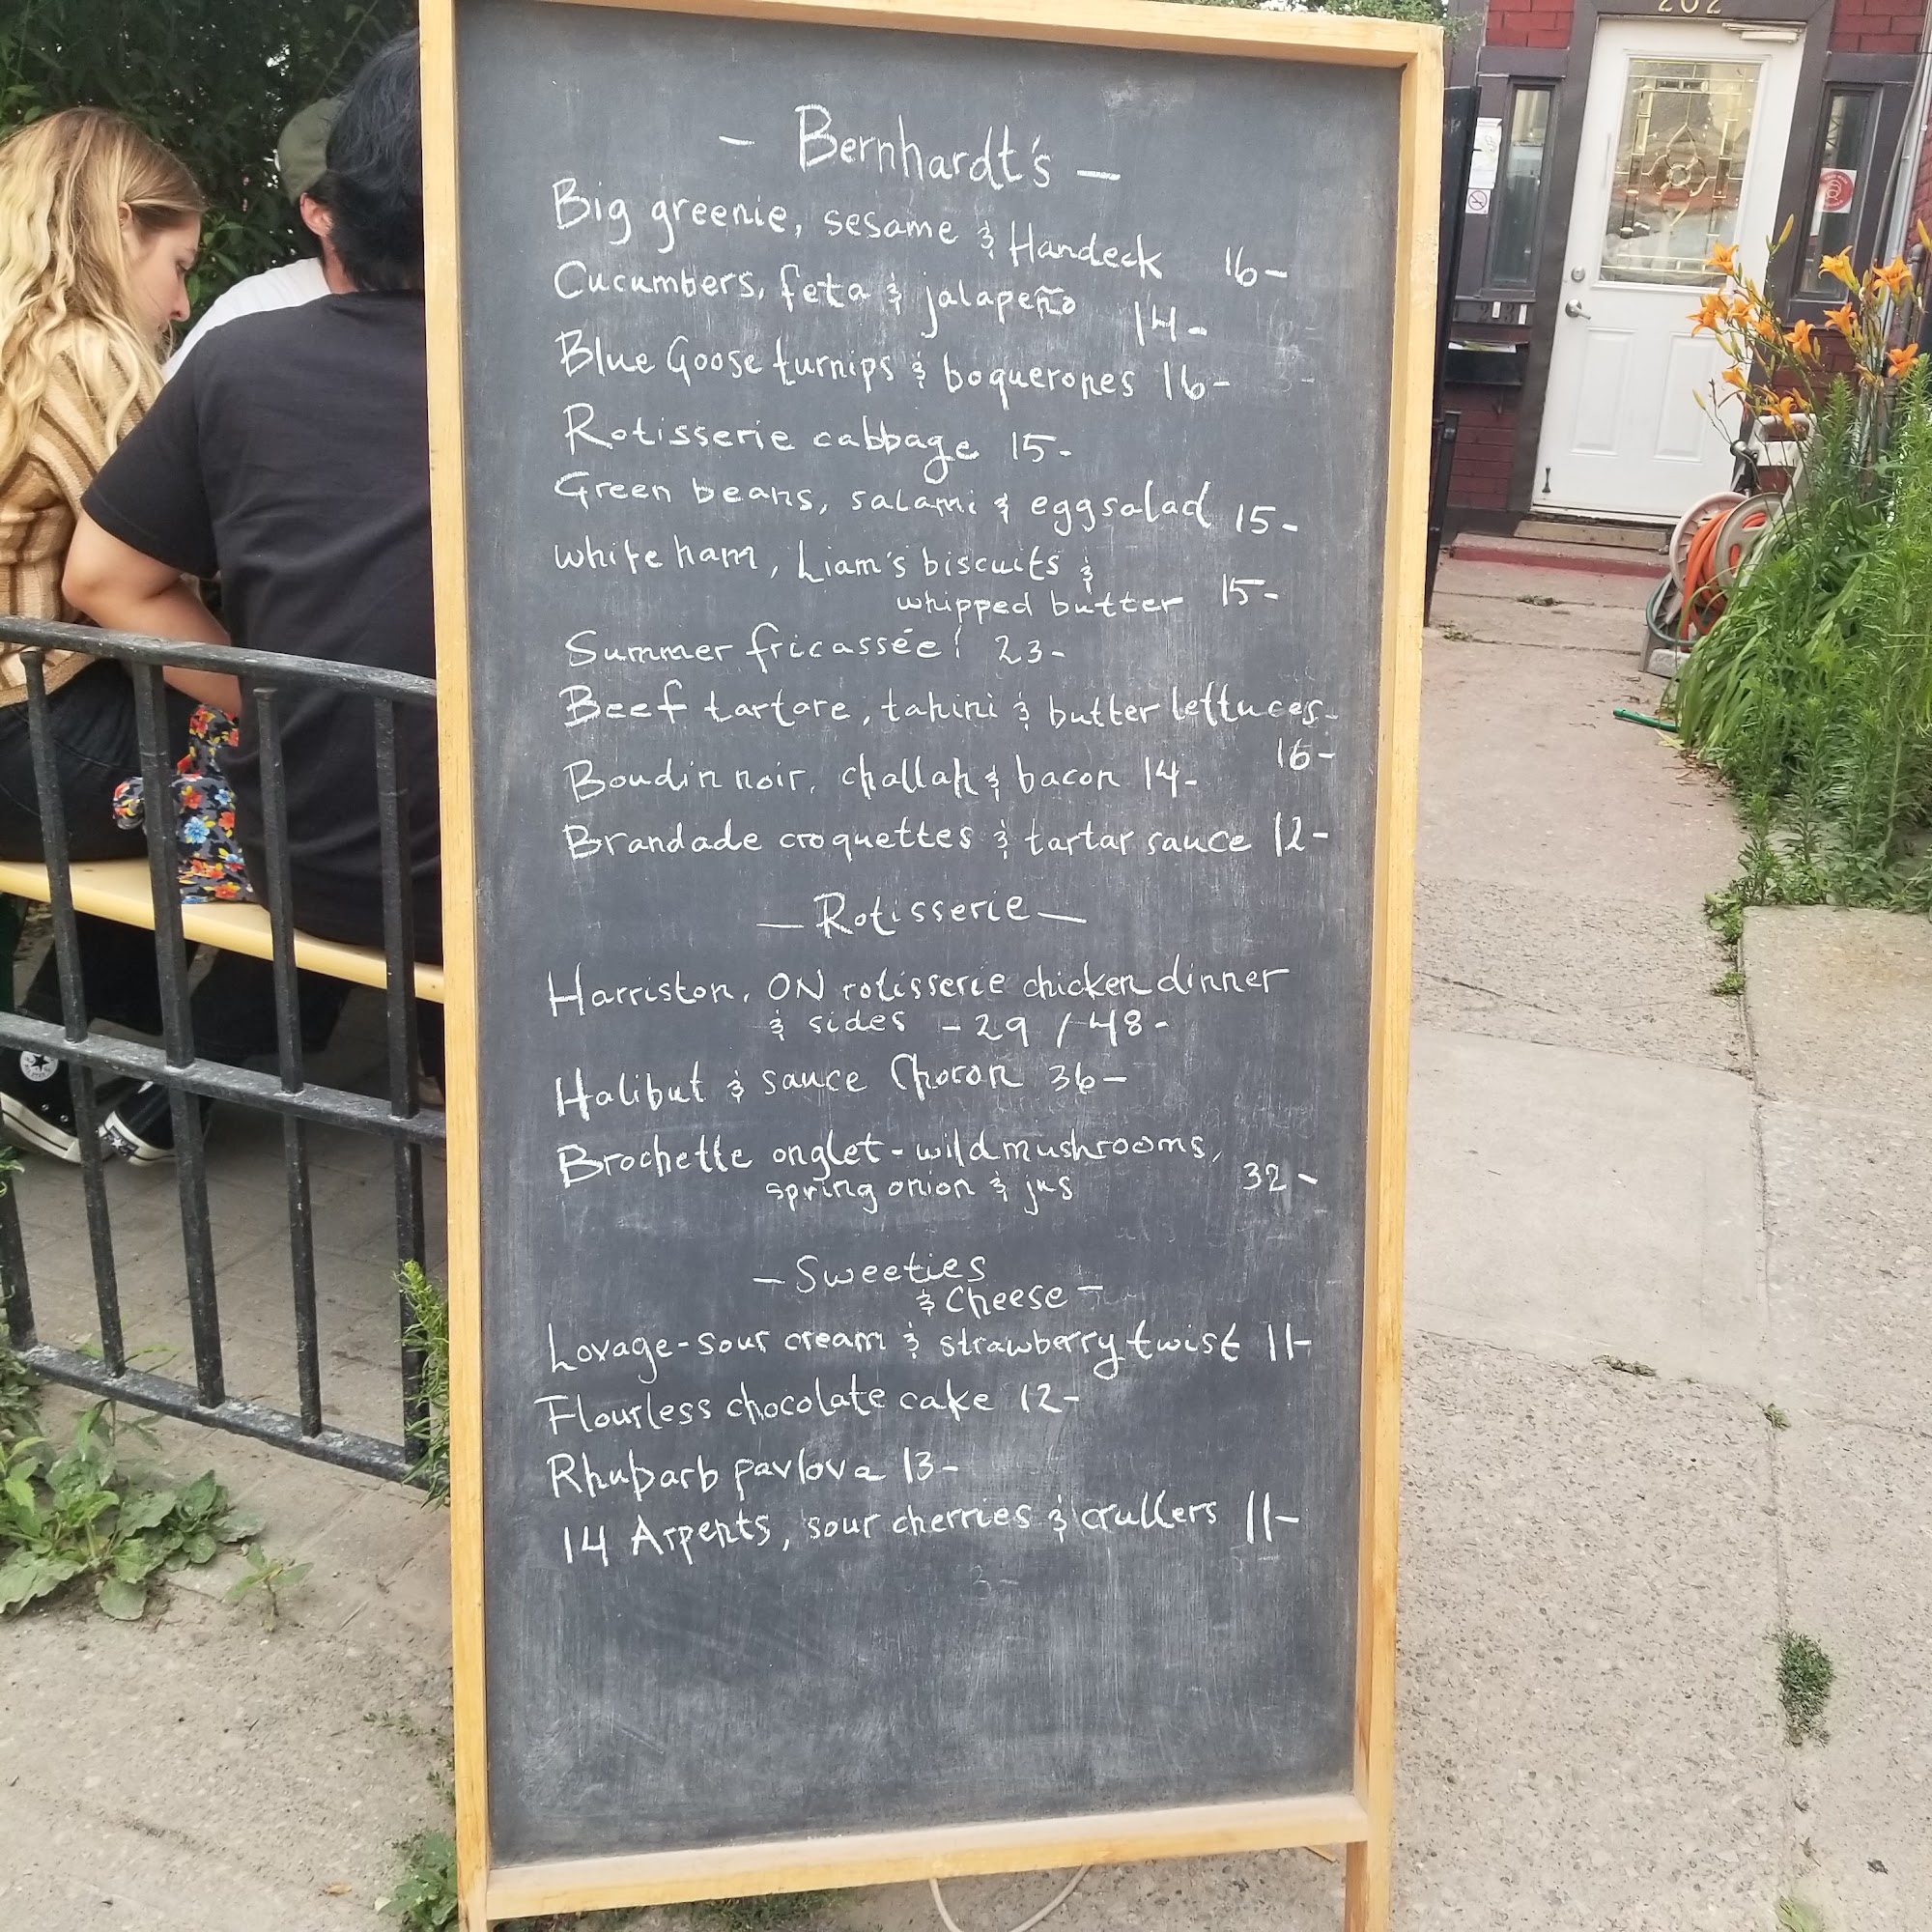 202
— Bernhardt's —
Big greenie, sesame & Handeck 16-
Cucumbers, feta & jalapeño 14-
Blue Goose turnips & boquerones 16-
Rotisserie cabbage 15-
Green beans, salami & egg salad 15-
White ham, Liam's biscuits &
whipped butter 15-
Summer fricassée! 23-
Beef tartare, tahini & butter lettuces-
16-
Boudin noir, challah & bacon 14-
Brandade croquettes & tartar sauce 12-
— Rotisserie —
Harriston, ON rotisserie chicken dinner
& sides - 29 / 48-
Halibut & sauce Choron 36-
Brochette onglet - wild mushrooms,
spring onion & jus 32-
— Sweeties
& Cheese —
Lovage-sour cream & strawberry twist 11-
Flourless chocolate cake 12-
Rhubarb pavlova 13-
14 Arpents, sour cherries & crullers 11-